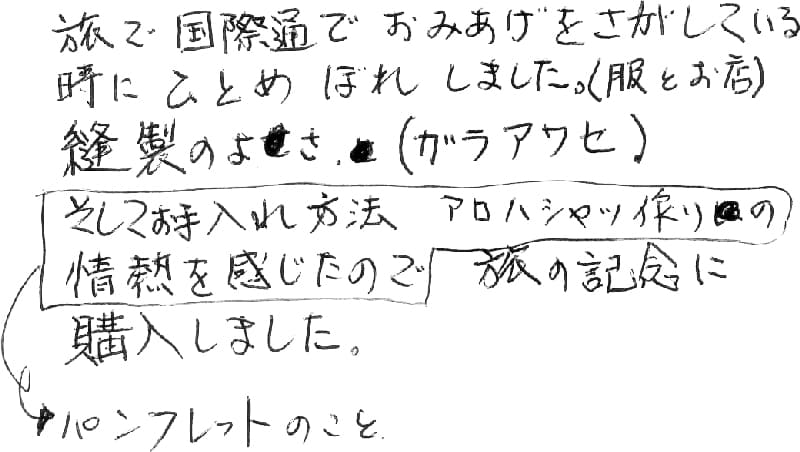 旅で国際通でおみあげをさがしている
時にひとめぼれしました。(服とお店)
縫製のよさ、(ガラアワセ)
そしてお手入れ方法 アロハシャツ作りの
情熱を感じたので 旅の記念に
購入しました。
パンフレットのこと